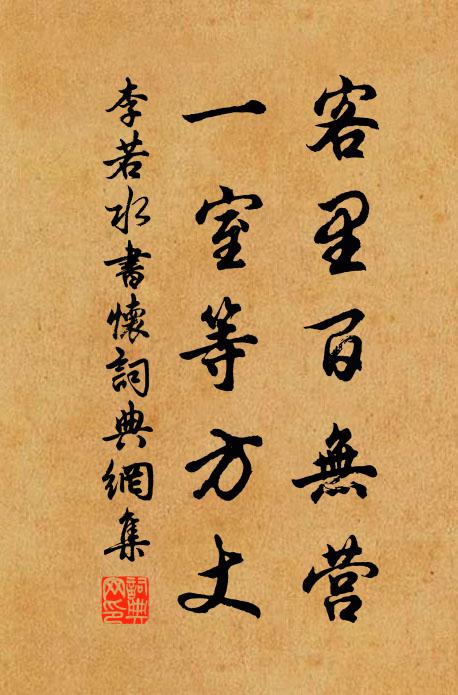 客里百無营
一室等方丈
李若水書懷詞典網集
詞典網印